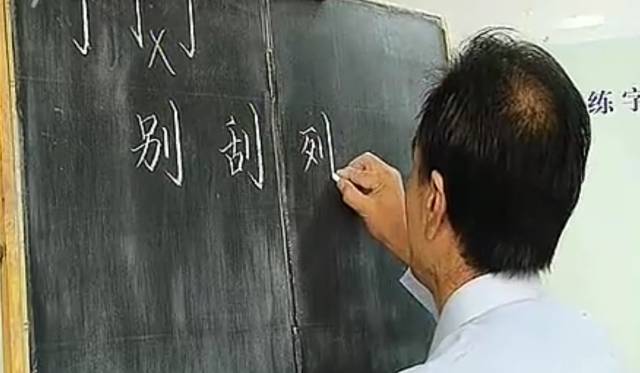 别 刮 列
练字